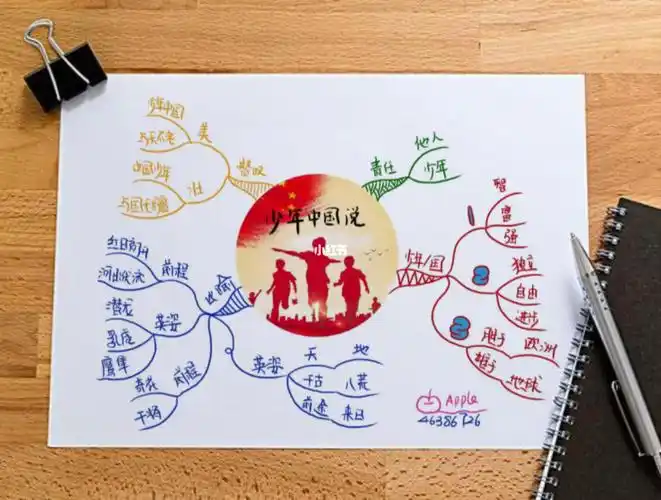 少年中国说
小红书
责任
他人
少年
少年/国
1
智
富
强
2
独立
自由
进步
3
胜于
雄于
欧洲
地球
赞叹
美
少年中国
与天不老
壮
中国少年
与国无疆
比喻
前程
红日初升
河出伏流
英姿
潜龙
乳虎
鹰隼
前程
奇花
干将
英姿
天
地
千古
八荒
前途
来日
Apple